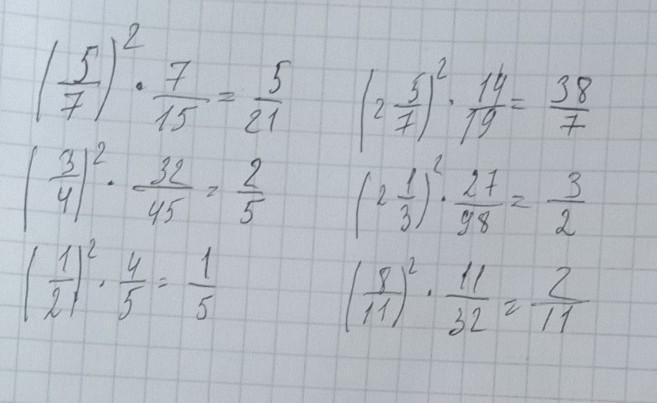 (5/7)² · 7/15 = 5/21
(3/4)² · 32/45 = 2/5
(1/2)² · 4/5 = 1/5
(2 5/7)² · 14/19 = 38/7
(2 1/3)² · 27/98 = 3/2
(8/11)² · 11/32 = 2/11